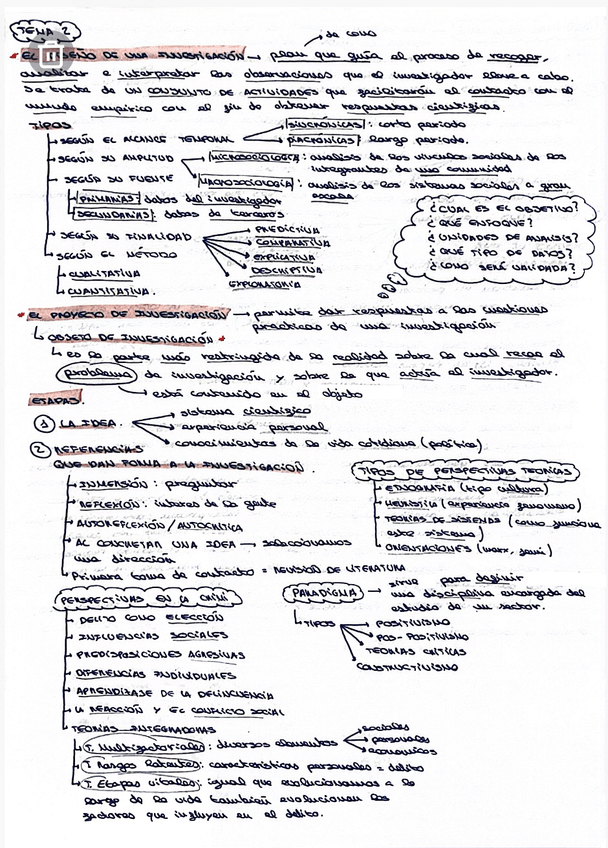 TEMA 2
de como
* EL DISEÑO DE UNA INVESTIGACIÓN → plan que guía el proceso de recoger,
analizar e interpretar las observaciones que el investigador lleve a cabo.
Se trata de un CONJUNTO DE ACTIVIDADES que facilitarán el contacto con el
mundo empírico con el fin de obtener respuestas científicas.
TIPOS
SEGÚN EL ALCANCE TEMPORAL
SINCRÓNICAS: corto periodo
DIACRÓNICAS: largo periodo.
SEGÚN SU AMPLITUD
MICROSOCIOLOGIA: analisis de los vinculos sociales de los
integrantes de una comunidad
MACROSOCIOLOGÍA: analisis de los sistemas sociales a gran
escala
SEGÚN SU FUENTE
PRIMARIAS: datos del investigador
SECUNDARIAS: datos de terceros
SEGÚN SU FINALIDAD
PREDICTIVA
COMPARATIVA
EXPLICATIVA
DESCRIPTIVA
EXPLORATORIA
SEGÚN EL MÉTODO
CUALITATIVA
CUANTITATIVA.
¿CUAL ES EL OBJETIVO?
¿QUÉ ENFOQUE?
¿UNIDADES DE ANALISIS?
¿QUÉ TIPO DE DATOS?
¿COMO SERÁ VALIDADA?
* EL PROYECTO DE INVESTIGACIÓN → permite dar respuestas a las cuestiones
prácticas de una investigación
OBJETO DE INVESTIGACIÓN *
es la parte más restringida de la realidad sobre la cual recae el
problema de investigación y sobre la que actúa el investigador.
está contenido en el objeto
ETAPAS.
1 LA IDEA.
sistema científico
experiencia personal
conocimientos de la vida cotidiana (política)
2 REFERENCIAS
QUE DAN FORMA A LA INVESTIGACIÓN.
INMERSIÓN: preguntar
REFLEXIÓN: interes de la gente
AUTOREFLEXIÓN / AUTOCRITICA
AL CONCRETAR UNA IDEA → seleccionamos
una dirección
Primera toma de contacto = REVISIÓN DE LITERATURA
TIPOS DE PERSPECTIVAS TEÓRICAS
ETNOGRAFÍA (tipo cultura)
HEURISTIA (experiencia fenomeno)
TEORÍAS DE SISTEMAS (como funciona
este sistema)
ORIENTACIONES (marx, femi)
PERSPECTIVAS EN LA CRIMI
DELITO COMO ELECCIÓN
INFLUENCIAS SOCIALES
PREDISPOSICIONES AGRESIVAS
DIFERENCIAS INDIVIDUALES
APRENDIZAJE DE LA DELINCUENCIA
LA REACCIÓN Y EL CONFLICTO SOCIAL
TEORÍAS INTEGRADORAS
T. Multifactoriales: diversos elementos
sociales
personales
economicos
T. Rasgos latentes: características personales = delito
T. Etapas vitales: igual que evolucionamos a lo
largo de la vida también evolucionan los
factores que influyen en el delito.
PARADIGMA → sirve para definir
una disciplina encargada del
estudio de un sector.
TIPOS
POSITIVISMO
POS-POSITIVISMO
TEORÍAS CRÍTICAS
CONSTRUCTIVISMO